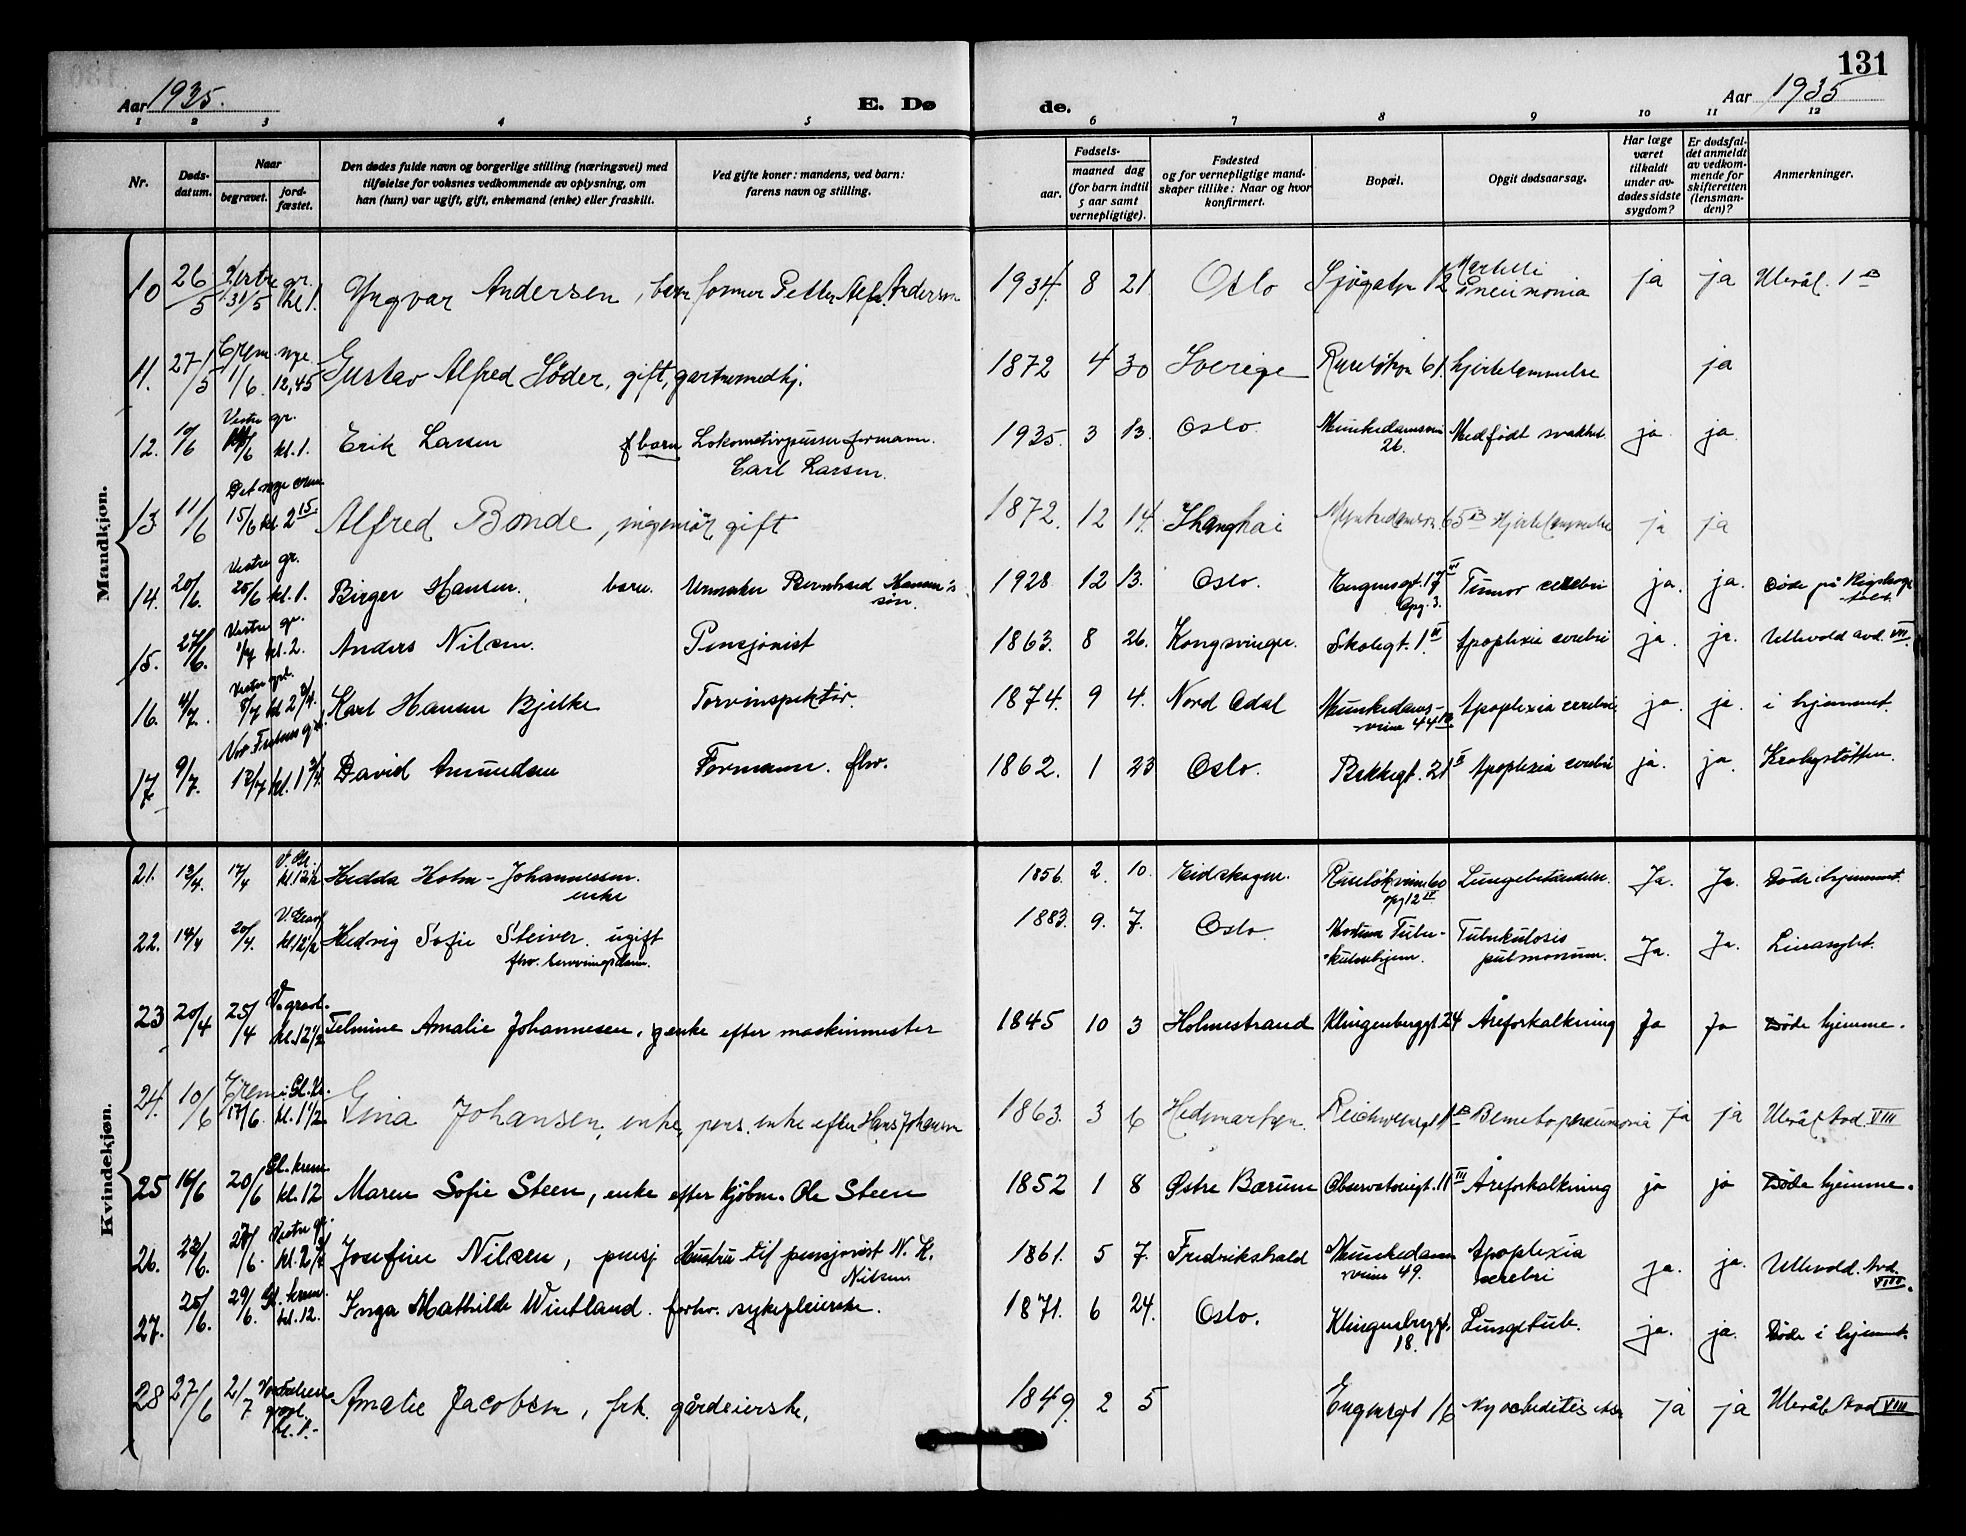 131
Aar 1935.
E. Dø
de.
Aar 1935
1 2 3 4 5 6 7 8 9 10 11 12
Nr.
Døds-datum.
Naar
begravet.
jord-fæstet.
Den dødes fulde navn og borgerlige stilling (næringsvei) med
tilføielse for voksnes vedkommende av oplysning, om
han (hun) var ugift, gift, enkemand (enke) eller fraskilt.
Ved gifte koner: mandens, ved barn:
farens navn og stilling.
Fødsels-
aar.
maaned dag
(for barn indtil
5 aar samt
vernepligtige).
Fødested
og for vernepligtige mand-
skaper tillike: Naar og hvor
konfirmert.
Bopæl.
Opgit dødsaarsag.
Har læge
været
tilkaldt
under av-
dødes sidste
sygdom?
Er dødsfal-
det anmeldt
av vedkom-
mende for
skifteretten
(lensman-
den)?
Anmerkninger.
Mandkjøn.
10 26/5 Vestre gr. 31/5 kl 1. Yngvar Andersen, barn former Petter Alfr. Andersen 1934 8 21 Oslo Sjøgatn 12 Pneumonia ja ja Ulevål. 1 B
11. 27/5 Crem. nye 1/6. 12,45 Gustav Alfred Söder, gift, gartnermedhj. 1872 4 30 Sverige 61. Hjertelammelse ja
12. 10/6 Vestre gr. kl. 1. Erik Larsen barn Lokomotivpusserformann Carl Larsen. 1935. 3 13. Oslo. Munkedamsvn 26. Medfødt svakhet. ja. ja.
13 11/6 Det nye crem 15/6 kl 2 15. Alfred Bonde, ingeniør gift 1872. 12 14. Shanghai 65 B Hjertelammelse ja ja
14. 20/6. Vestre gr. 25/6 kl. 1. Birger Hansen. barn. Urmaker Bernhard Hansen's søn. 1928 12 13. Oslo. Engensgt. 17 VI Opg. 3. Tumor cerebri ja. ja. Døde på Rigshospitalet.
15. 27/6. Vestre gr. 1/7 kl. 2. Anders Nilsen. Pensjonist 1863. 8 26. Kongsvinger. Skolegt. 1. II Apoplexia cerebri ja. ja. Ullevold avd. VII.
16. 4/7. Vestre grl. 8/7 kl 2 3/4. Karl Hansen Bjelke Torvinspektør. 1874. 9 4. Nord Odal Munkedamsveien 44 Apoplexia cerebri ja. ja. i hjemmet
17. 9/7. Vor Frelsers gr. 12/7 kl. 1 3/4. David Amundsen Formann. fhv. 1862. 1 23 Oslo. Bakkegt. 21 II Apoplexia cerebri ja. ja. Krohgstøtten.
Kvindekjøn.
21. 13/4. 17/4 V. Gr. kl. 12 1/2 Hedda Holm-Johannessen. enke 1856. 2. 10. Eidskogen. Ruseløkveien 60 opg 12 IV Lungebetændelse. Ja. Ja. Døde i hjemmet.
22. 14/4 20/4. V. Grav kl. 12 1/2 Hedvig Sofie Steiver. ugift fhv. 1883. 9. 7. Oslo. Modum Tuberkulosehjem. Tuberkulosis pulmonum. Ja. Ja.
23 20/4 25/4 V. gravl. kl. 12 1/2 Telmine Amalie Johannesen, enke efter maskinmester 1845 10 3 Holmestrand Klingenberggt 24 Åreforkalkning Ja Ja Døde hjemme.
24. 10/6 Crem i Gl. Kr. 17/6. kl. 1 1/2 Gina Johansen, enke, pens. enke efter Hans Johansen 1863. 3 6 Hedmarken. Pneumonia ja ja Ulevål Avd. VIII
25 16/6 20/6 Gl. krem kl. 12 Maren Sofie Steen, enke efter kjøbm. Ole Steen 1852 1 8 Østre Bærum Observatoriegt. 11 III Åreforkalkning ja ja Døde hjemme.
26. 23/6. Vestre gr. kl. 2 3/4 Josefine Nilsen, pensj Hustru til pensjonist N. K. Nilsen. 1861. 5 7. Fredrikshald Munkedamsveien 49. Apoplexia cerebri ja. ja. Ullevold. Avd. VIII.
27. 25/6. 29/6. Gl. krem. kl. 12. Inga Mathilde Wintland. forhv. sykepleierske. 1871. 6 24. Oslo. Klingenberggt. 18. Lungetub. ja. ja. Døde i hjemmet.
28 27/6 2/7 Vor Frelsers gravl. kl. 1. Amalie Jacobsen, frk. gårdeierske, 1849 2 5 Engensgt 16 ja ja Ulevål Avd VIII